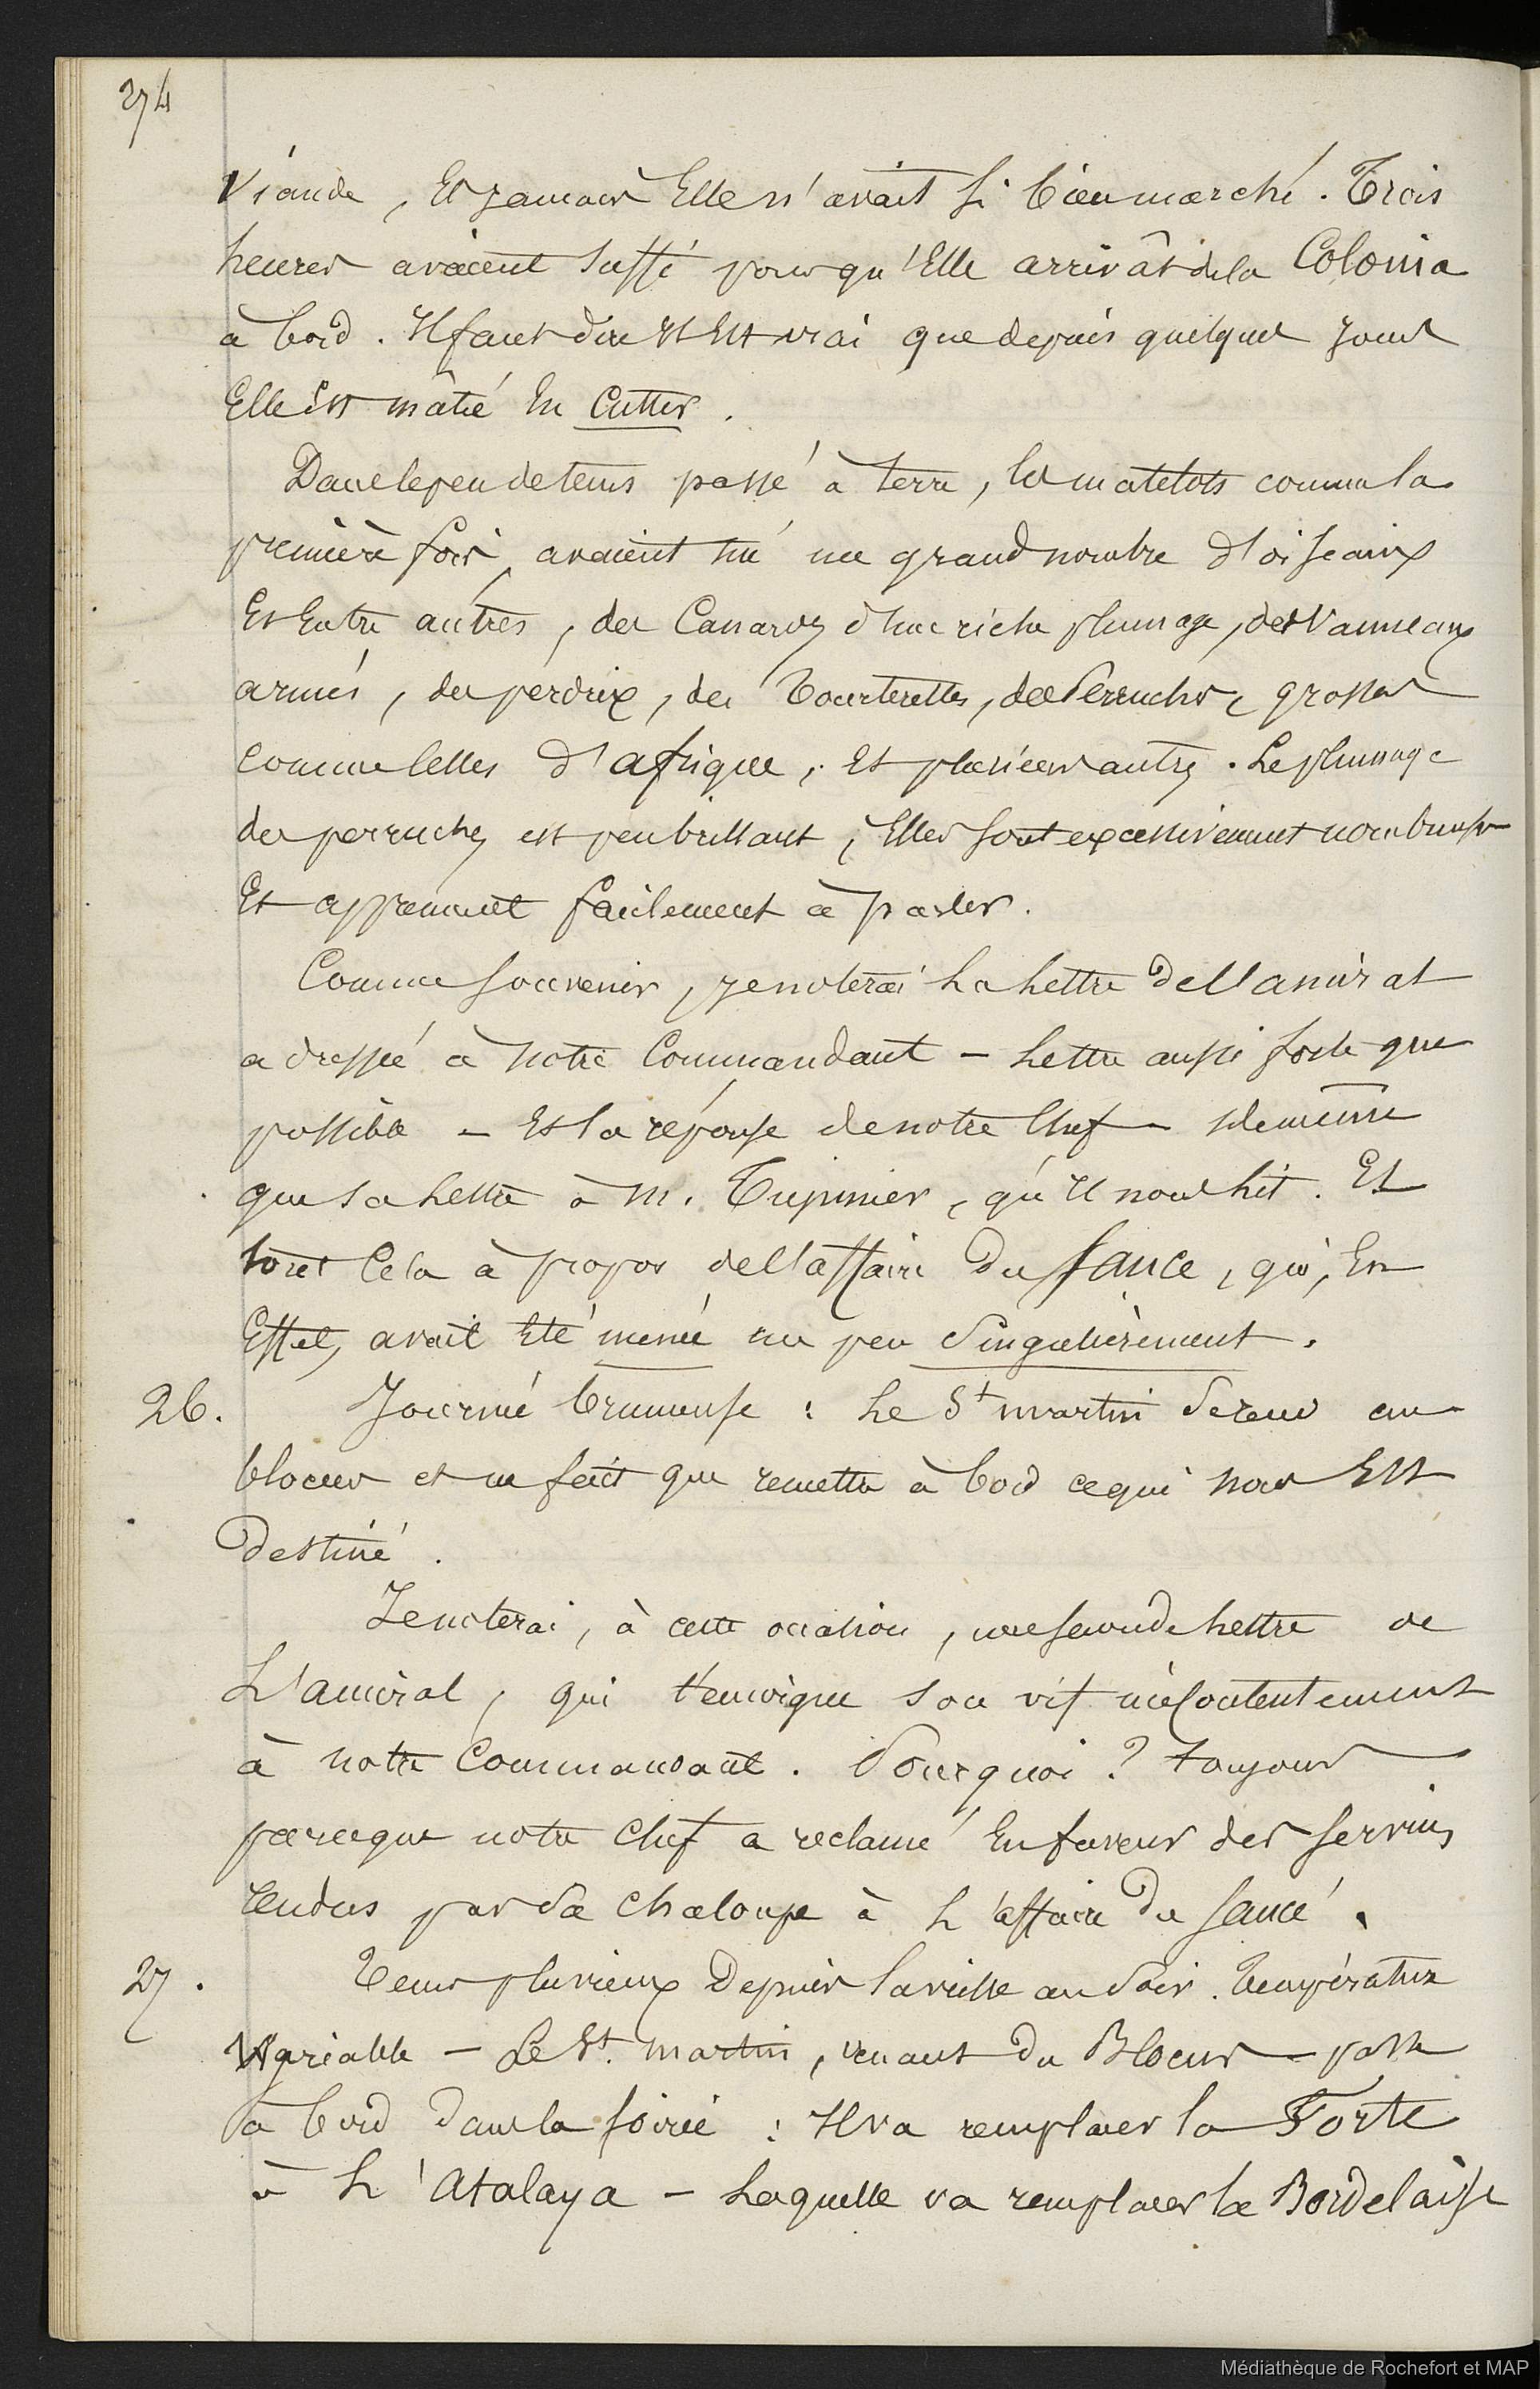 274
Viande, Et jamais Elle n'avait si bien marché. Trois
heures avaient suffi pour qu'Elle arrivât de la Colonia
à bord. Il faut dire Il Est vrai que depuis quelques jours
Elle Est mâtée En Cutter.
Dans le peu de tems passé à terre, les matelots comme la
première fois, avaient tué un grand nombre d'oiseaux
Et Entre autres, des Canards d'une riche plumage, des Vanneaux
armés, des perdrix, des Tourterelles, des Perruches, grosses
comme celles d'afrique, Et plusieurs autres. Le plumage
des perruches est peu brillant, Elles sont excessivement nombreuses
Et apprennent facilement à parler.
Comme souvenir, je noterai La Lettre de l'amiral
adressée à notre Commandant - Lettre aussi forte que
possible - Et la réponse de notre Chef - de même
que sa Lettre à M. Tupinier, qu'Il nous lit. Et
tout Cela à propos de l'affaire Du Sauce, qui, En
Effet, avait Eté menée un peu Singulièrement.
26. Journée brumeuse : Le St martin se rend au
blocus et ne fait que remettre à bord ce qui nous Est
Destiné.
Je noterai, à cette occasion, une seconde Lettre de
L'amiral, qui témoigne son vif mécontentement
à notre Commandant. Pourquoi ? toujours
parceque notre Chef a reclamé En faveur des services
rendus par sa Chaloupe à L'affaire Du Saucé.
27. Tems pluvieux Depuis la veille au Soir. Température
Agréable - Le St. martin, venant Du Blocus - passe
à bord Dans la soirée : Il va remplacer la Forte
à L'Atalaya - Laquelle va remplacer la Bordelaise
Médiathèque de Rochefort et MAP